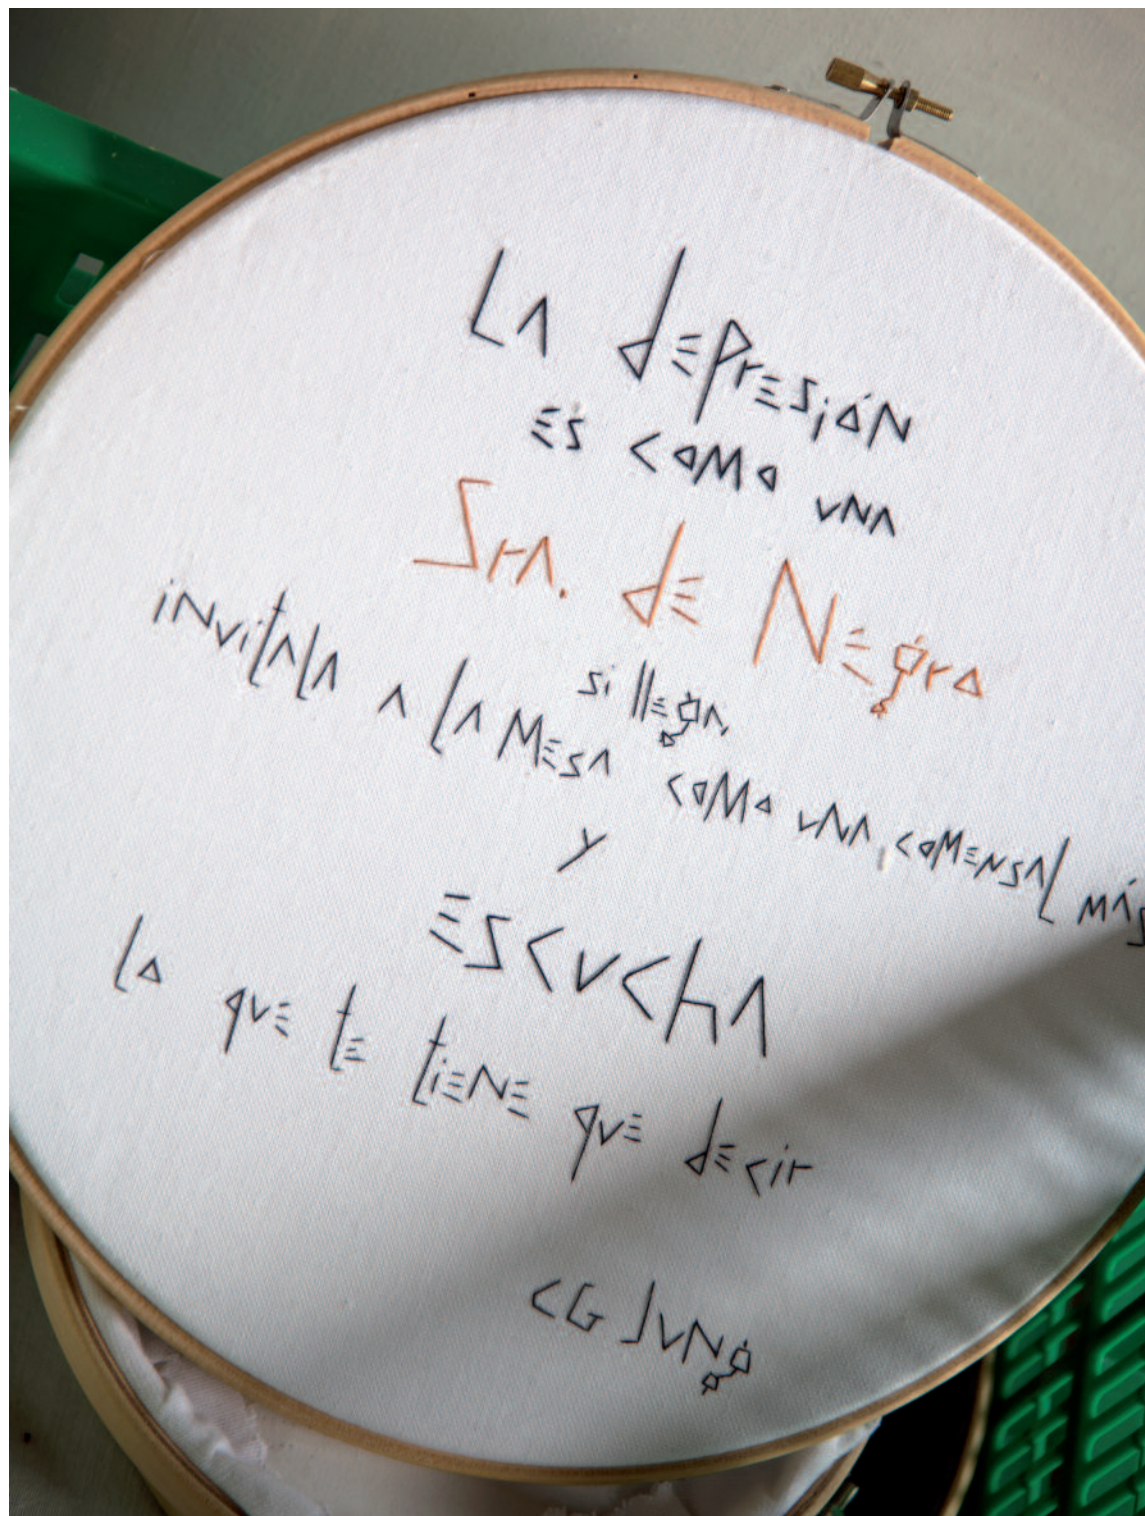 LA dEPrESiÓN
ES COMO UNA
Sra. dE NEgro
Si llEgA,
iNvitAlA A lA MESA COMO UNA COMENSAl MÁS
y
ESCUChA
lo quE tE tiENE quE dECir
CG JUNg